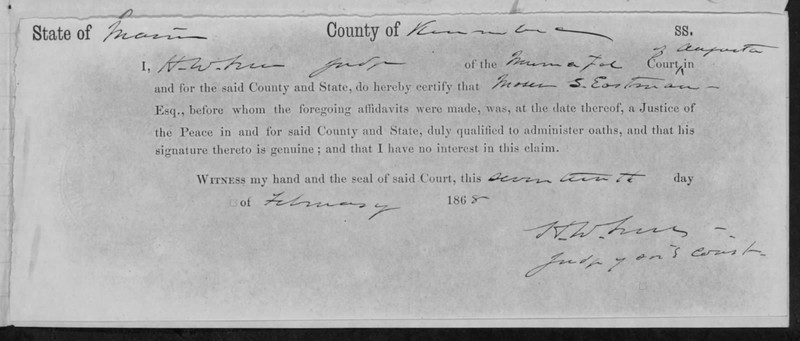 State of Maine County of Kennebec SS.
I, H. W. True Judge of the Municipal Court of Augusta in
and for the said County and State, do hereby certify that Moses S. Eastman
Esq., before whom the foregoing affidavits were made, was, at the date thereof, a Justice of
the Peace in and for said County and State, duly qualified to administer oaths, and that his
signature thereto is genuine; and that I have no interest in this claim.
Witness my hand and the seal of said Court, this seventeenth day
of February 1868
H. W. True
Judge of said Court.